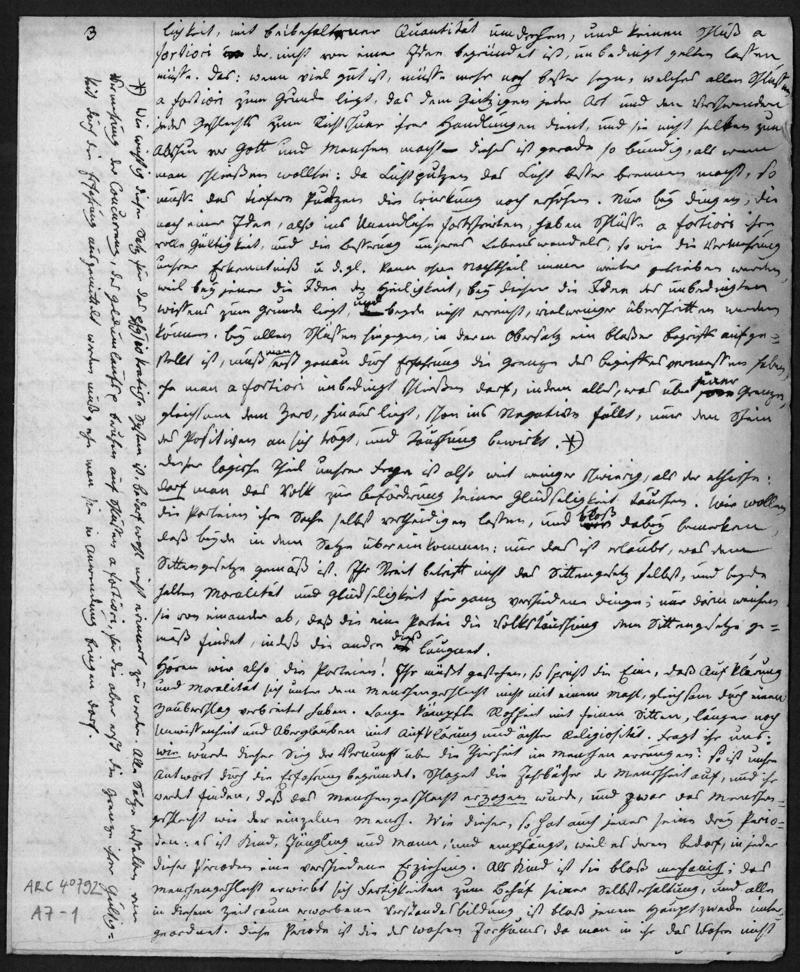 3
lichkeit, mit beibehaltener Quantität umdrehen, und keinen Schluß a
fortiori der nicht von einer Idee begründet ist, unbedingt gelten lassen
müsse. Das: wenn viel gut ist, müsse mehr noch besser seyn, welches allen Schlüssen
a fortiori zum Grunde liegt, das dem Geitzigen jeder Art und dem Verschwender
jedes Geschlechts zum Richtschnur ihrer Handlungen dient, und sie nicht selten zum
Abscheu vor Gott und Menschen macht dieses ist gerade so bündig, als wenn
man schließen wollte: da Lichtputzen das Licht besser brennen macht, so
müsse das tiefere Putzen die Wirkung noch erhöhen. Nur bey Dingen, die
nach einer Idee, also ins Unendliche fortstreben, haben Schlüsse a fortiori ihre
volle Gültigkeit, und die Besserung unseres Lebenswandels, so wie die Vermehrung
unsrer Erkenntniß u. d. gl. kann ohne Nachtheil immer weiter getrieben werden,
weil bey jener die Idee der Heiligkeit, bey dieser die Idee des unbedingten
Wissens zum Grunde liegt, und beyde nicht erreicht, vielweniger überschritten werden
können. Bey allen Schlüssen hingegen, in deren Obersatz ein bloßer Begriff aufge-
stellt ist, muß man erst genau durch Erfahrung die Grenze des Begriffes vermessen haben,
ehe man a fortiori unbedingt schließen darf, indem alles, was über seiner Grenze,
gleichsam dem Zero, hinaus liegt, schon ins Negative fällt, nur den Schein
des Positiven an sich trägt, und Täuschung bewirkt. *)
Dieser logische Theil unsrer Frage ist also weit weniger schwierig, als der ethische:
darf man das Volk zur Beförderung seiner Glückseligkeit täuschen. Wir wollen
die Parteien ihre Sache selbst vertheidigen lassen, und bloß dabey bemerken,
daß beyde in dem Satze übereinkommen: nur das ist erlaubt, was dem
Sittengesetze gemäß ist. Ihr Streit betrifft nicht das Sittengesetz selbst, und beyde
halten Moralität und Glückseligkeit für ganz verschiedene Dinge; nur darin weichen
sie von einander ab, daß die eine Partei die Volkstäuschung dem Sittengesetze ge-
mäß findet, indeß die andre dieß läugnet.
Hören wir also die Parteien! Ihr müßt gestehen, so spricht die Eine, daß Aufklärung
und Moralität sich unter dem Menschengeschlecht nicht mit einem Mahl, gleichsam durch einen
Zauberschlag verbreitet haben. Lange kämpfte Rohheit mit feinen Sitten, länger noch
Unwissenheit und Aberglauben mit Aufklärung und ächter Religiosität. Fragt ihr uns:
wie wurde dieser Sieg der Vernunft über die Thierheit im Menschen errungen? so ist unsre
Antwort durch die Erfahrung begründet. Schlaget die Jahrbücher der Menschheit auf, und ihr
werdet finden, daß das Menschengeschlecht erzogen wurde, und zwar das Menschen-
geschlecht wie der einzelne Mensch. Wie dieser, so hat auch jenes seine drey Perio-
den: es ist Kind, Jüngling und Mann, und empfängt, weil es deren bedarf, in jeder
dieser Perioden eine verschiedene Erziehung. Als Kind ist sie bloß mechanisch; das
Menschengeschlecht erwirbt sich Fertigkeiten zum Behuf seiner Selbsterhaltung, und alle
in diesem Zeitraum erworbene Verstandesbildung, ist bloß jenem Hauptzwecke unter-
geordnet. Diese Periode ist die des wahren , da man in ihr das Wahre nicht
*) Wie wichtig dieser Satz für das System ist, bedarf wohl nicht erinnert zu werden. Alle Sätze desselben, von
Vermehrung der Concurrenz, des Geldumlaufs p beruhen auf Schlüssen a fortiori, für die aber erst die Grenze ihrer Gültig-
keit durch die Erfahrung ausgemittelt werden muß, ehe man sie in Anwendung bringen darf.
ARC 4°792
A7-1